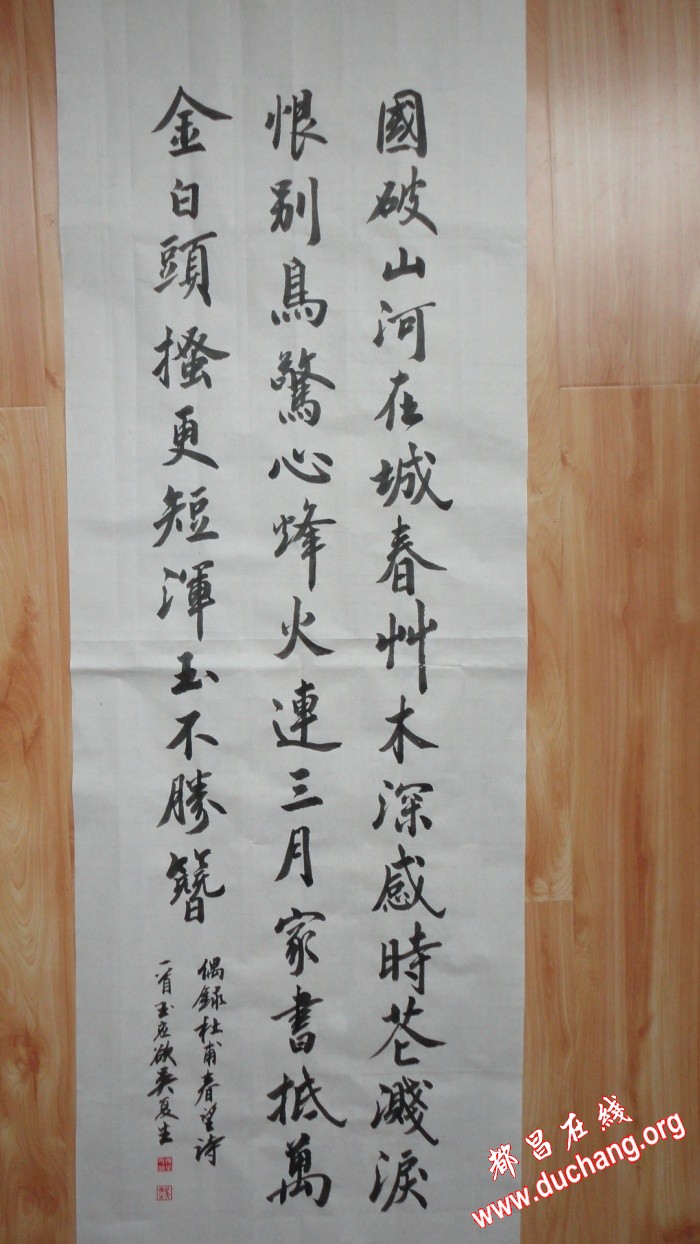 國破山河在城春艸木深感時花濺淚
恨别鳥驚心烽火連三月家書抵萬
金白頭搔更短渾玉不勝簪
偶録杜甫春望詩
一首玉应欲吴夏生
都昌在线
www.duchang.org